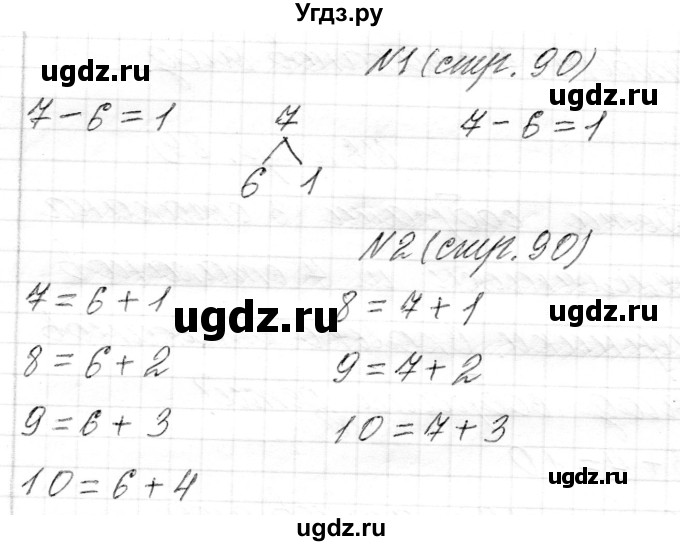 Угдз.ру
ugdz.ru
№1 (стр. 90)
ugdz.ru
7 - 6 = 1
7
7 - 6 = 1
6 1
№2 (стр. 90)
7 = 6 + 1
ugdz.ru
8 = 7 + 1
8 = 6 + 2
9 = 7 + 2
9 = 6 + 3
10 = 7 + 3
10 = 6 + 4
ugdz.ru
ugdz.ru